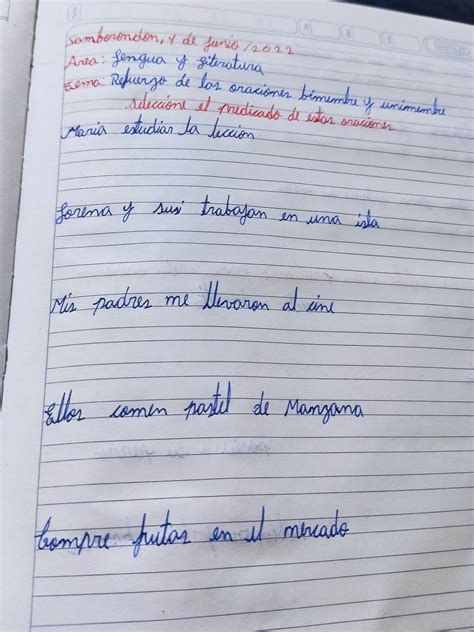 Samborondon, 4 de junio /2022
Area: Lengua y literatura
tema: Refuerzo de las oraciones bimembre y unimembre
seleccione el predicado de estas oraciones
Maria estudiar la lección
Lorena y sus trabajan en una isla
Mis padres me llevaron al cine
Ellos comen pastel de Manzana
Compre frutas en el mercado